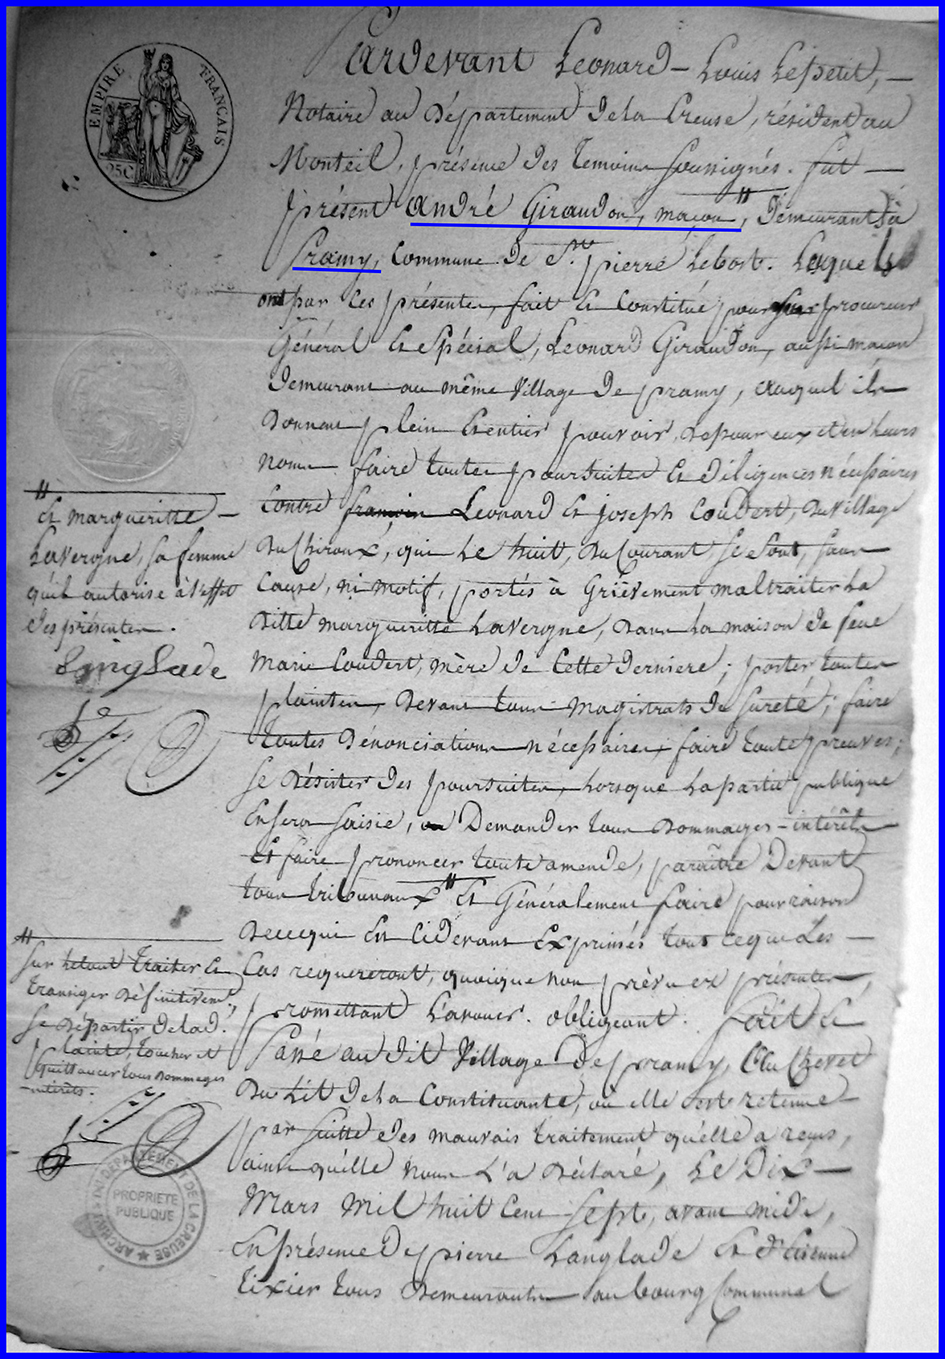 EMPIRE FRANÇAIS
25C
Pardevant Leonard - Louis Lepetit, —
Notaire au Département De la Creuse, résident au
Monteil, présence des temoins soussignés. fut —
présent André Giraudon, maçon", Demeurants à
Pramy, Commune de St. pierre Lebost. Lequels
ont par ces présentes, fait et Constitué pour procureur
Général et Spécial, Leonard Giraudon, aussi maçon
Demeurant au même Village de pramy, auquel ils
Donnent plein et entier pouvoir, de pour eux et en leurs
noms faire toutes poursuites et diligences nécessaires
contre Leonard et joseph Coudert, du village
du Chiroux, qui Le huit, du Courant, se sont, sans
Cause, ni motif, portés à Grièvement maltraiter La
ditte margueritte Lavergne, dans La maison de feue
Marie Coudert, mère de Cette derniere; porter toutes
plaintes, devant tous magistrats de sureté; faire
toutes dénonciations nécessaires, faire toute preuves;
se désister des poursuites, lorsque la partie publique
En sera saisie, Demander tous dommages-intérêts
et faire prononcer toute amende, paraître devant
tous tribunaux" et Généralement faire pour raison
de ce qui est cidevant Exprimés tout ce que Les —
Cas requereront, quoique non prévu ex présentes,
promettant L'avouer. obligeant. fait et
Passé au dit Village De pramy, au chevet
du Lit de la Constituante, où elle est retenue
par suitte des mauvais traitement qu'elle a reçus,
ainsi qu'elle nous L'a déclaré, Le Dix —
Mars Mil huit Cent sept, avant midi,
En présence De pierre Langlade et d'Etienne
tixier tous demeurants au bourg Communal
"
et margueritte —
Lavergne, sa femme
qu'il autorise à l'effet
des présentes.
Langlade
"
sur le tout traiter et
transiger définitivem.t,
se départir de lad.
plainte, toucher et
quittancer tous dommages
intérêts.
ARCHIVES DU DÉPARTEMENT DE LA CREUSE
PROPRIÉTÉ
PUBLIQUE